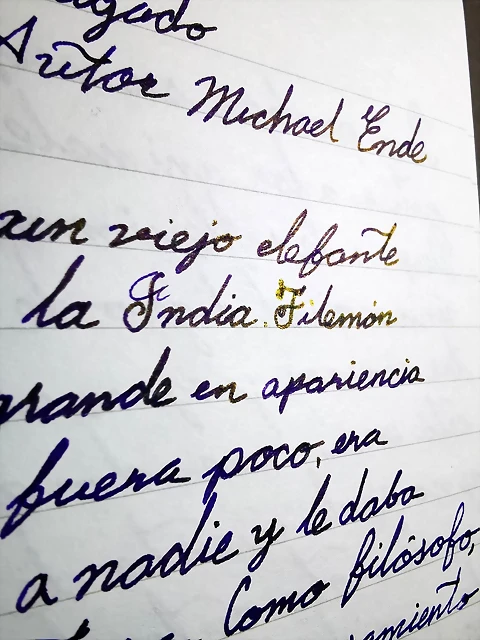 Autor Michael Ende
un viejo elefante
la India. Filemón
grande en apariencia
fuera poco, era
a nadie y le daba
Como filósofo,